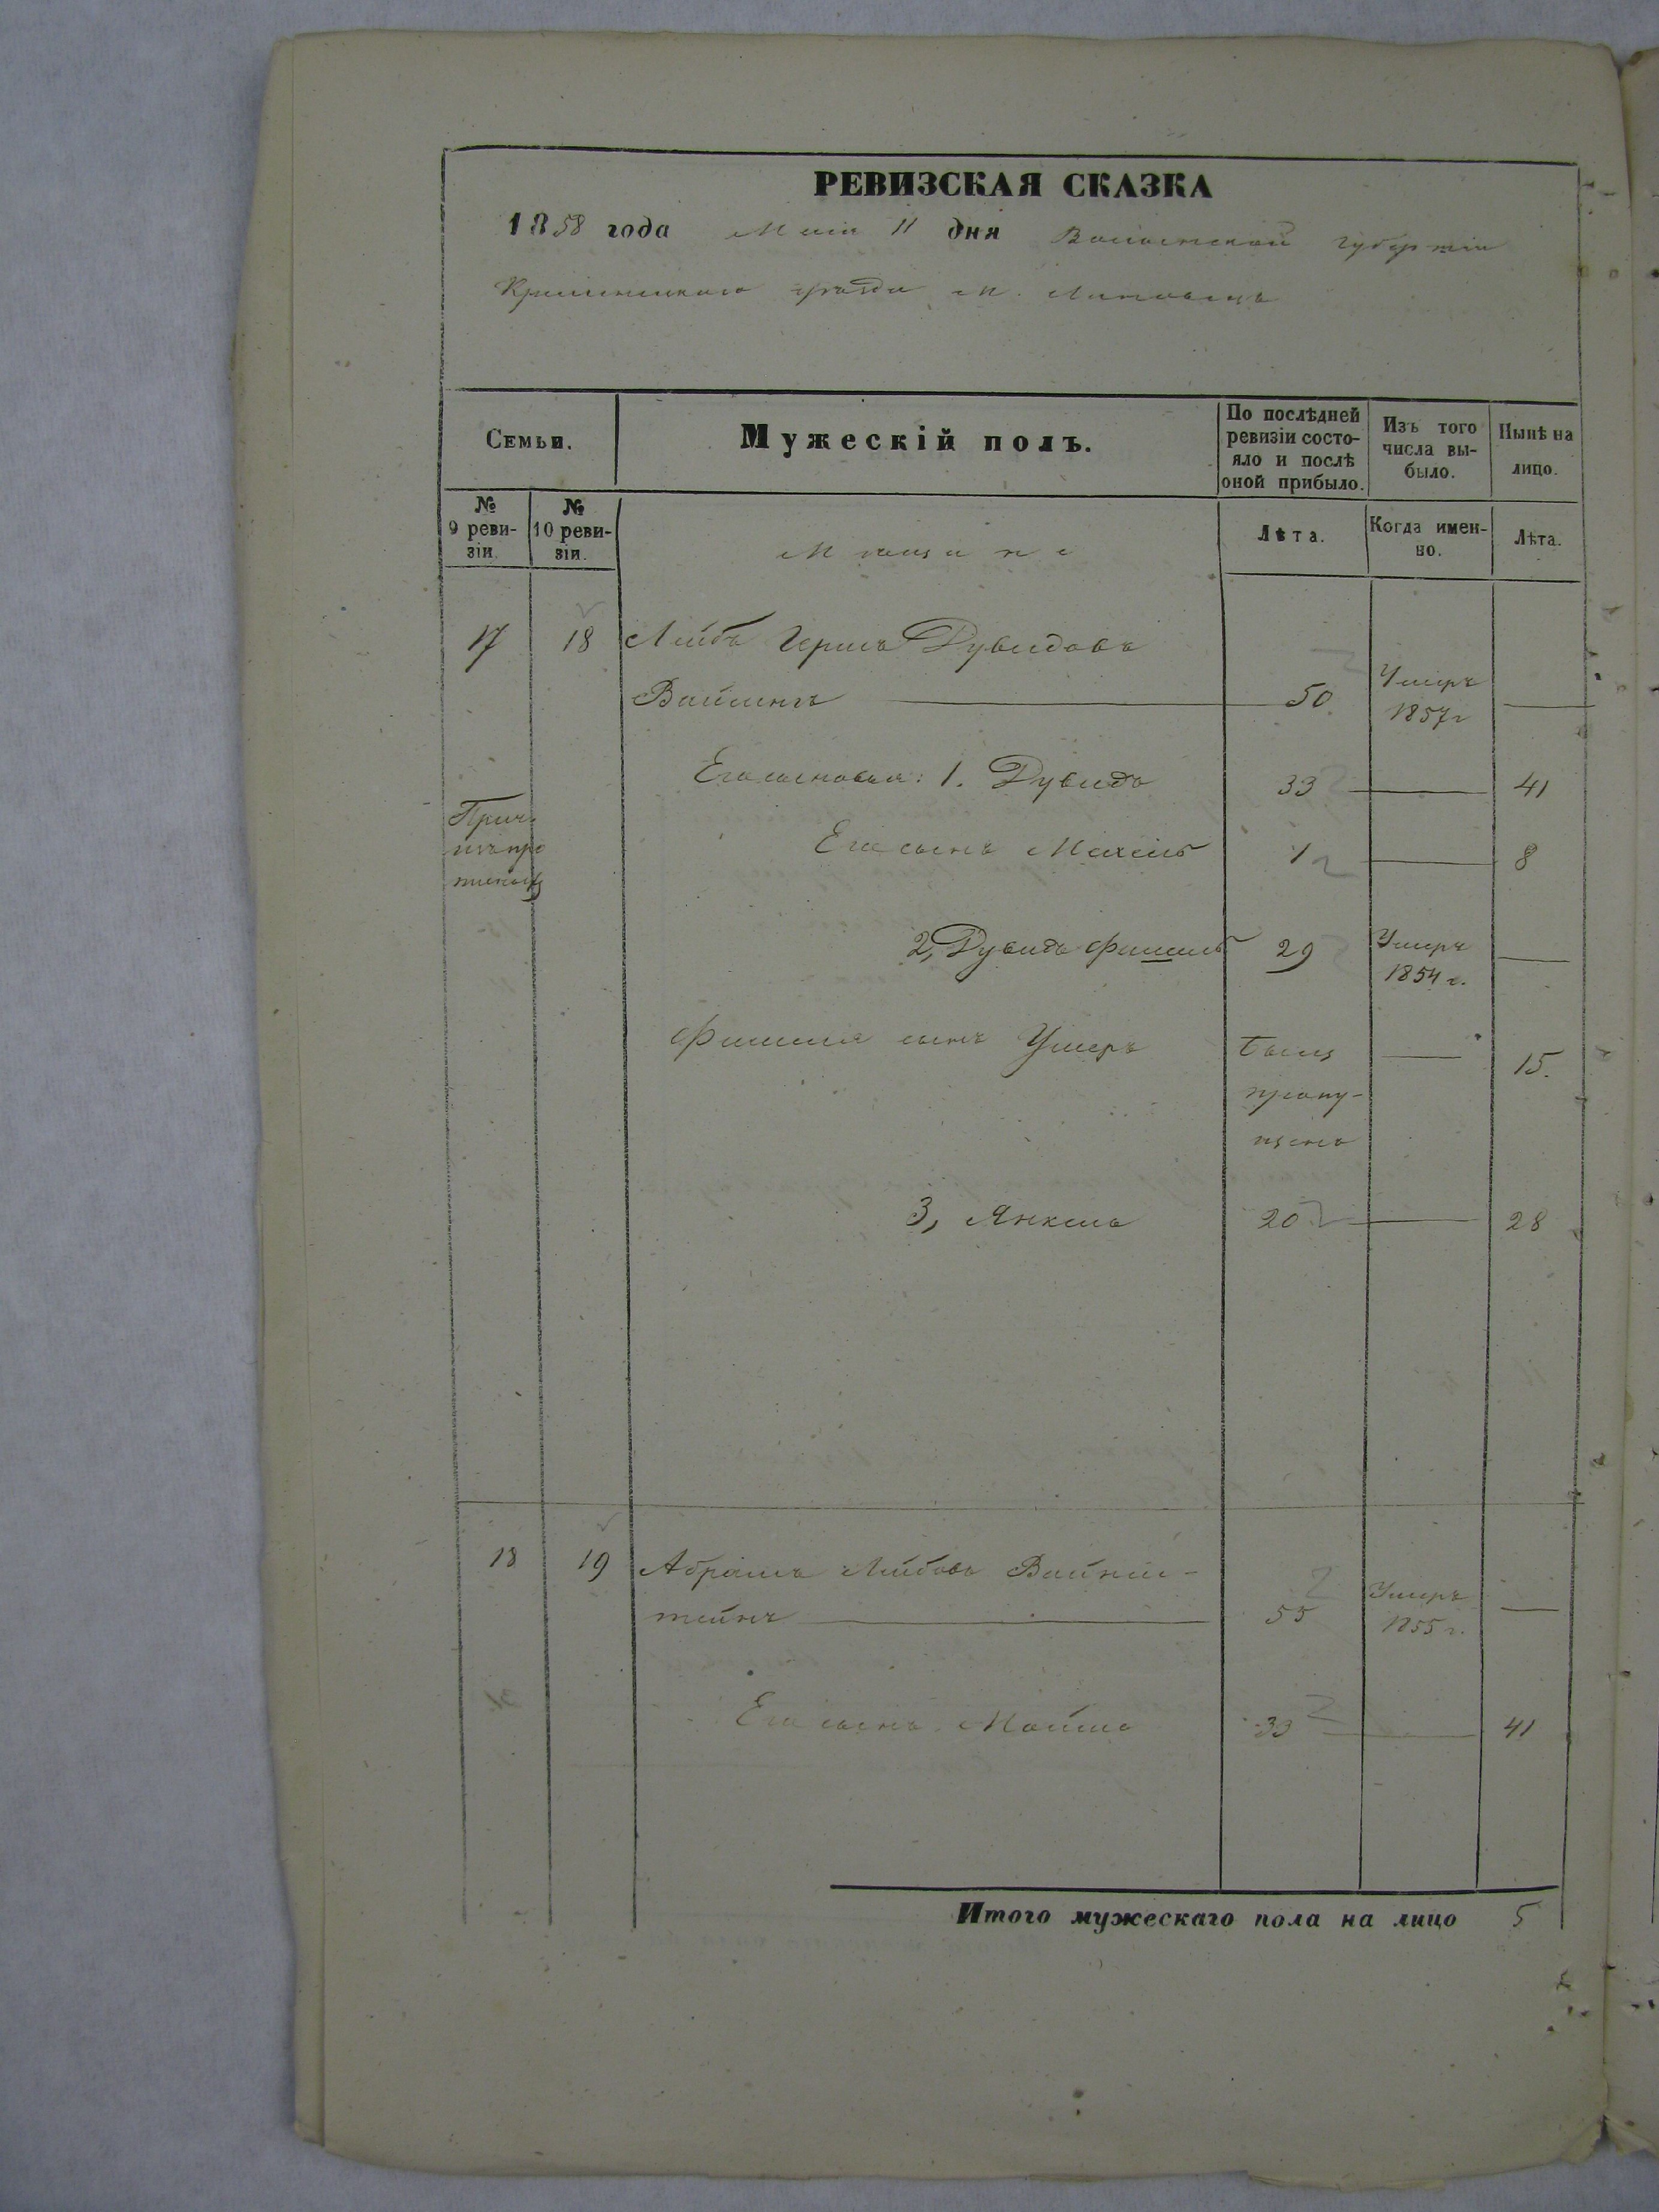 РЕВИЗСКАЯ СКАЗКА
1858 года Маія 11 дня Волынской губерніи
Кременецкаго уѣзда м.
Семьи.
Мужескій полъ.
По послѣдней
ревизіи состо-
яло и послѣ
оной прибыло.
Изъ того
числа вы-
было.
Нынѣ на
лицо.
№
9 реви-
зіи.
№
10 реви-
зіи.
Мѣщане
Лѣта.
Когда имен-
но.
Лѣта.
17 18 Лейбъ Гершъ Дувидовъ
50 Умеръ
1857 г
Его сыновья: 1. Дувидъ 33 41
Его сынъ Мехель 1 8
2, Дувидъ Фишель 29 Умеръ
1854 г.
Фишеля сынъ Ушеръ былъ 15.
пропу-
щенъ
3, Янкель 20 28
18 19 Абрамъ Лейбовъ Вайнш-
тейнъ 55 Умеръ
1855 г.
Его сынъ Мойше 33 41
Итого мужескаго пола на лицо 5